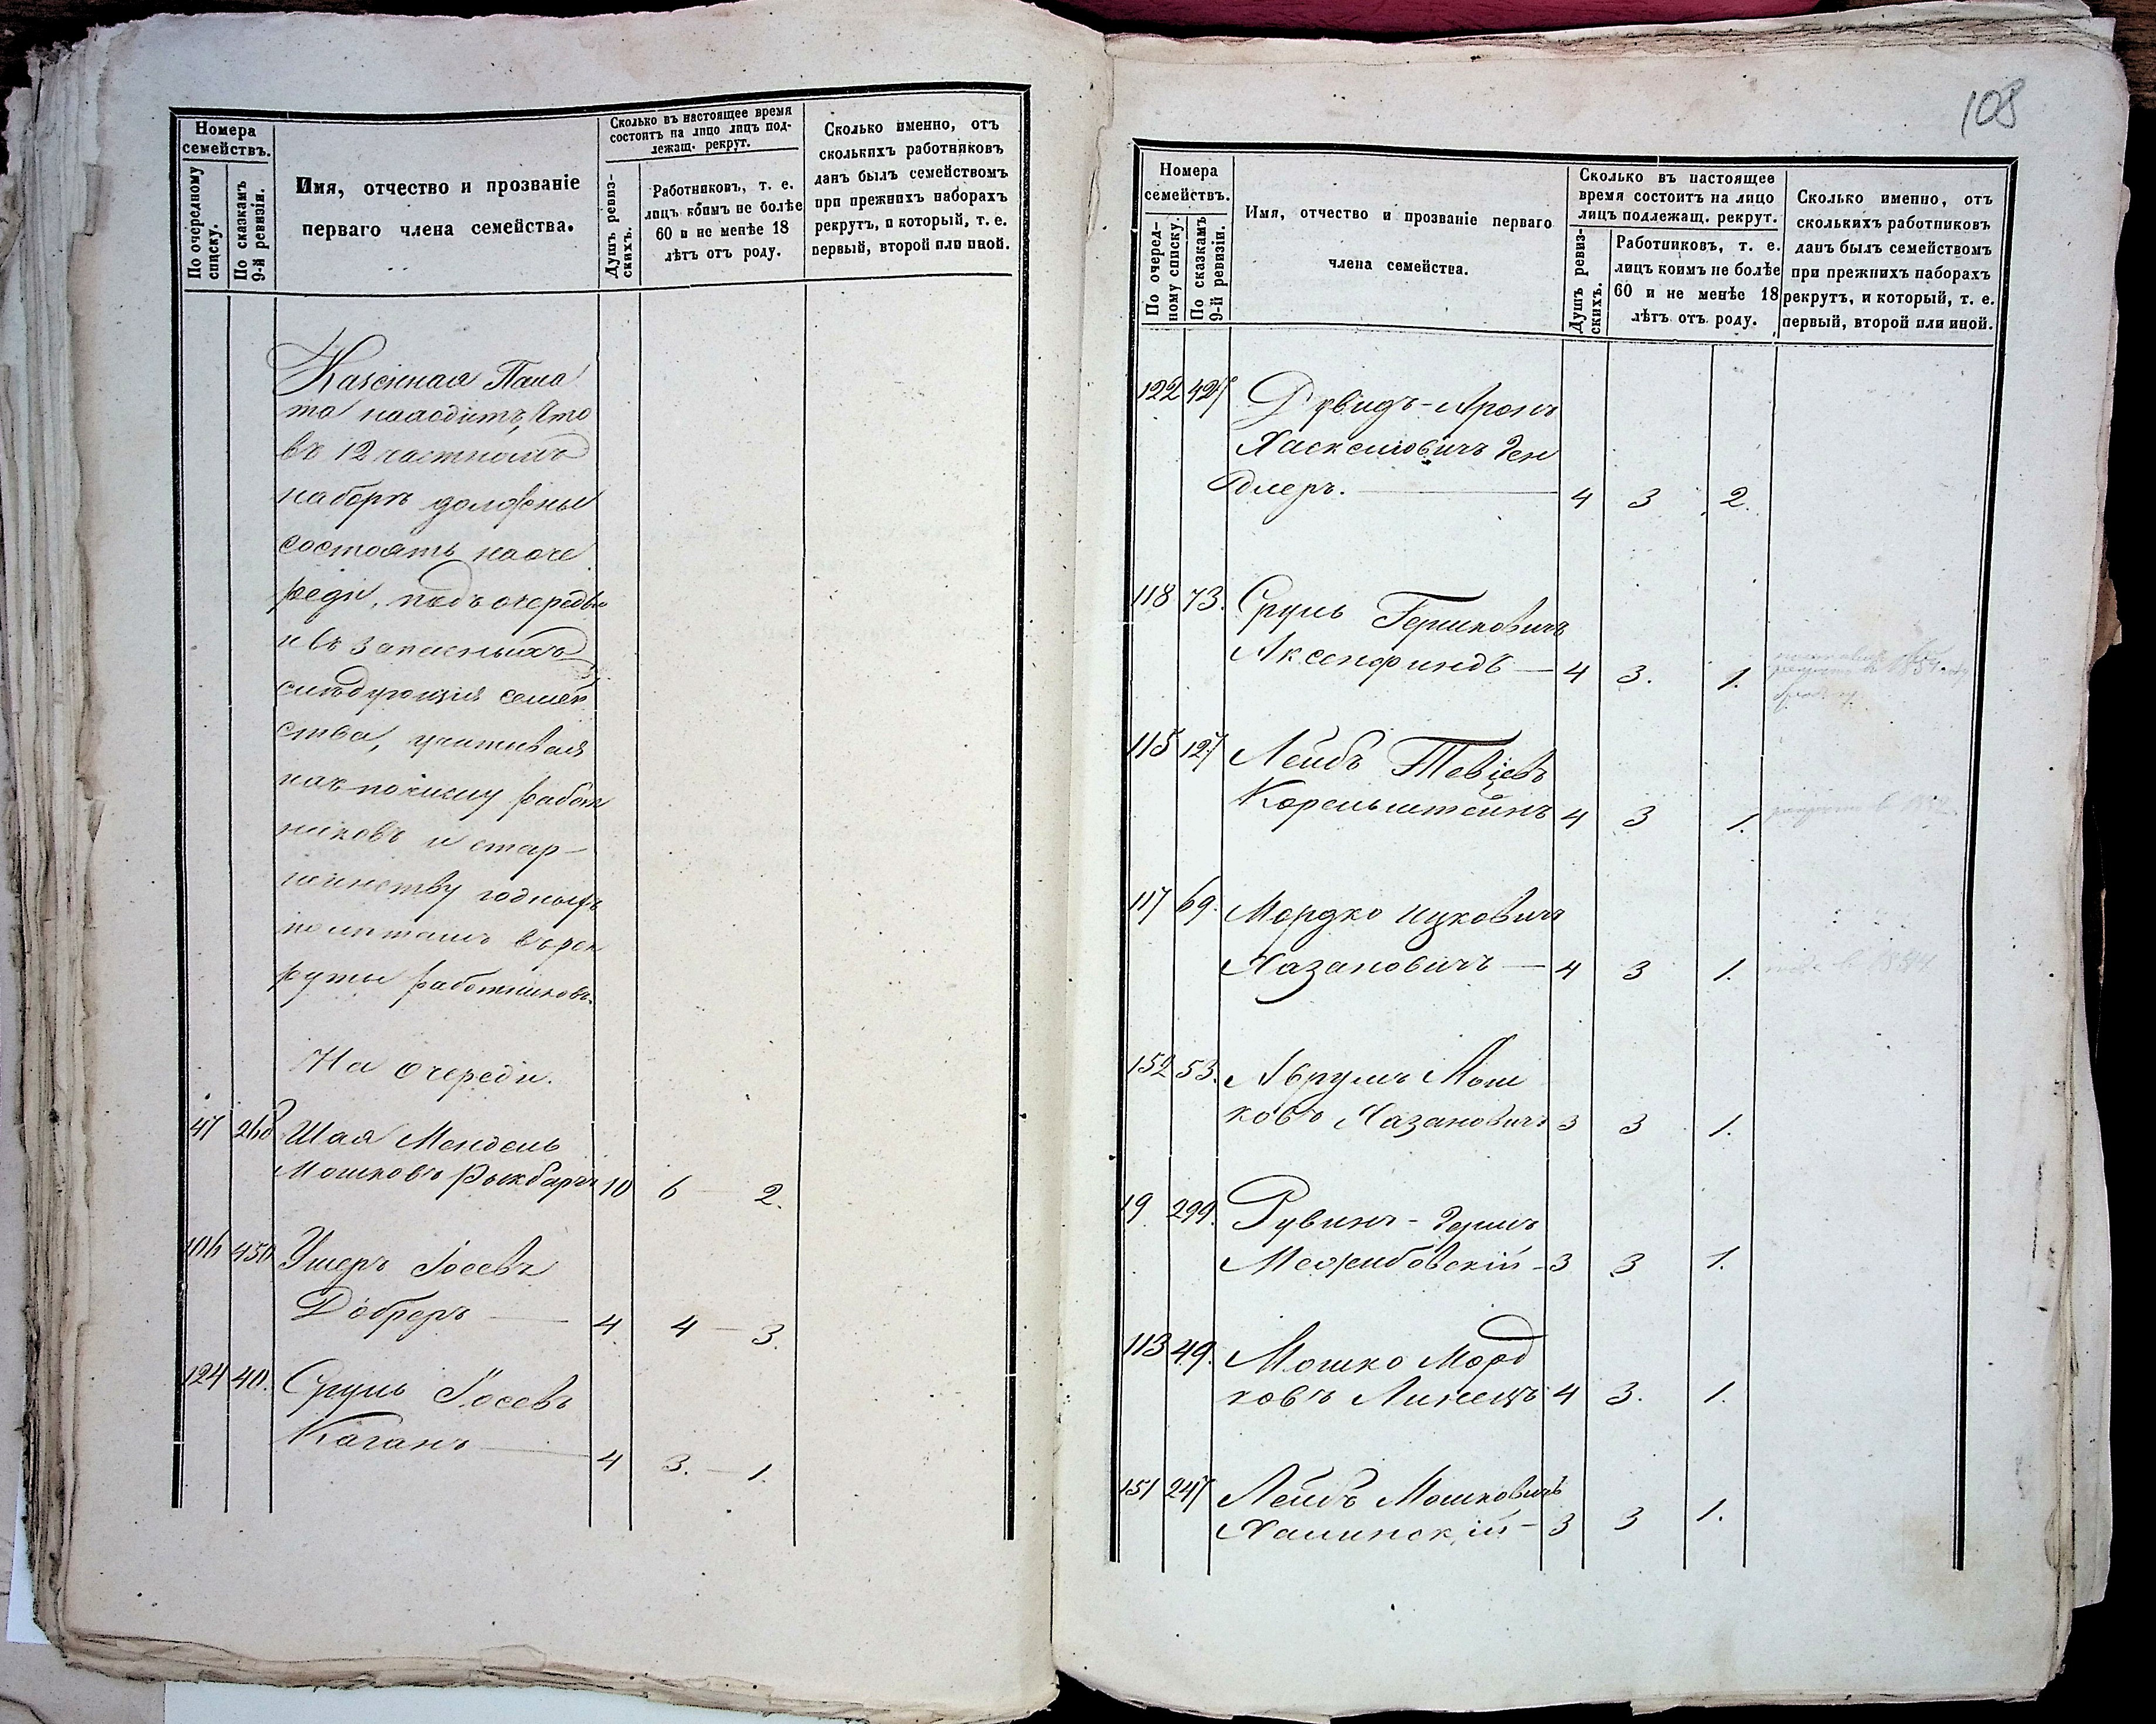 Номера
семействъ.
По очередному
списку.
По сказкамъ
9-й ревизіи.
Имя, отчество и прозваніе
перваго члена семейства.
Сколько въ настоящее время
состоитъ на лицо лицъ под-
лежащ. рекрут.
Душъ ревиз-
скихъ.
Работниковъ, т. е.
лицъ коимъ не болѣе
60 и не менѣе 18
лѣтъ отъ роду.
Сколько именно, отъ
сколькихъ работниковъ
данъ былъ семействомъ
при прежнихъ наборахъ
рекрутъ, и который, т. е.
первый, второй или иной.
Казенная Пала
та находитъ, что
въ 12 частномъ
наборѣ должны
состоять на оче
реди, подъ очередью
и въ запасныхъ
слѣдующія семей
ства, учитывая
ихъ по числу работ
никовъ и стар-
шинству годныхъ
по лѣтамъ въ рек
руты работниковъ.
На очереди.
47 268 Шая Мендель
Мошковъ 10 6 — 2.
106 450 Ушеръ Іосевъ
Добреръ — 4. 4 — 3.
124 40. Сруль Іосевъ
Каганъ — 4 3. — 1.
108
Номера
семействъ.
По очеред-
ному списку.
По сказкамъ
9-й ревизіи.
Имя, отчество и прозваніе перваго
члена семейства.
Сколько въ настоящее
время состоитъ на лицо
лицъ подлежащ. рекрут.
Душъ ревиз-
скихъ.
Работниковъ, т. е.
лицъ коимъ не болѣе
60 и не менѣе 18
лѣтъ отъ роду.
Сколько именно, отъ
сколькихъ работниковъ
данъ былъ семействомъ
при прежнихъ наборахъ
рекрутъ, и который, т. е.
первый, второй или иной.
122 427 Дувидъ-Аронъ
Хаскелювичъ Ген
длеръ. — 4 3 2.
118 73. Сруль Гершковичъ
Аксенфиндъ — 4 3. 1.
115 127 Лейбъ Тевіевъ
Корельштейнъ 4 3 1.
117 69. Мордко Ицковичъ
Хазановичъ — 4 3 1.
152 53. Абрумъ Мош
ковъ Хазановичъ 3 3 1.
19 299. Рувинъ-Гершъ
Межибовскій — 3 3 1.
113 49. Мошко Морд
ковъ Линецъ 4 3. 1.
151 247 Лейбъ Мошковичъ
Халинскій — 3 3 1.